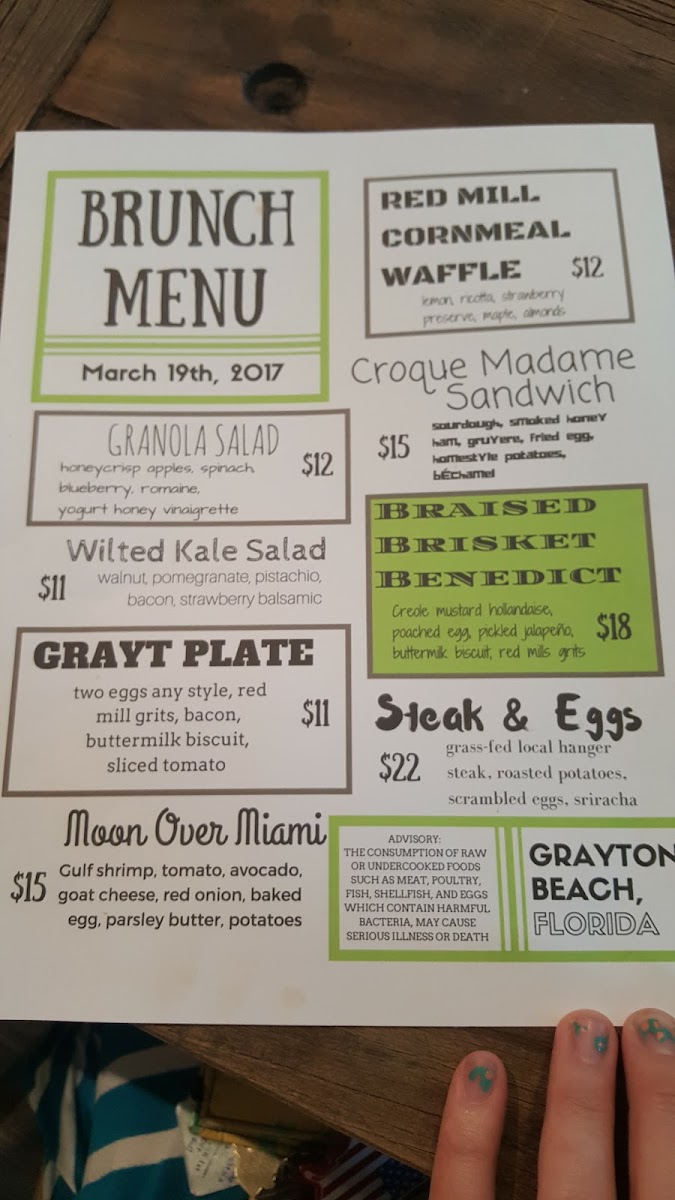 BRUNCH
MENU
March 19th, 2017
GRANOLA SALAD
$12
honeycrisp apples, spinach,
blueberry, romaine,
yogurt honey vinaigrette
Wilted Kale Salad
$11
walnut, pomegranate, pistachio,
bacon, strawberry balsamic
GRAYT PLATE
two eggs any style, red
mill grits, bacon,
$11
buttermilk biscuit,
sliced tomato
Moon Over Miami
$15
Gulf shrimp, tomato, avocado,
goat cheese, red onion, baked
egg, parsley butter, potatoes
RED MILL
CORNMEAL
WAFFLE $12
lemon, ricotta, strawberry
preserve, maple, almonds
Croque Madame
Sandwich
$15
sourdough, smoked honey
ham, gruyere, fried egg,
homestyle potatoes,
bÉchamel
BRAISED
BRISKET
BENEDICT
Creole mustard hollandaise,
poached egg, pickled jalapeño,
$18
buttermilk biscuit, red mills grits
Steak & Eggs
$22
grass-fed local hanger
steak, roasted potatoes,
scrambled eggs, sriracha
ADVISORY:
THE CONSUMPTION OF RAW
OR UNDERCOOKED FOODS
SUCH AS MEAT, POULTRY,
FISH, SHELLFISH, AND EGGS
WHICH CONTAIN HARMFUL
BACTERIA, MAY CAUSE
SERIOUS ILLNESS OR DEATH
GRAYTON
BEACH,
FLORIDA